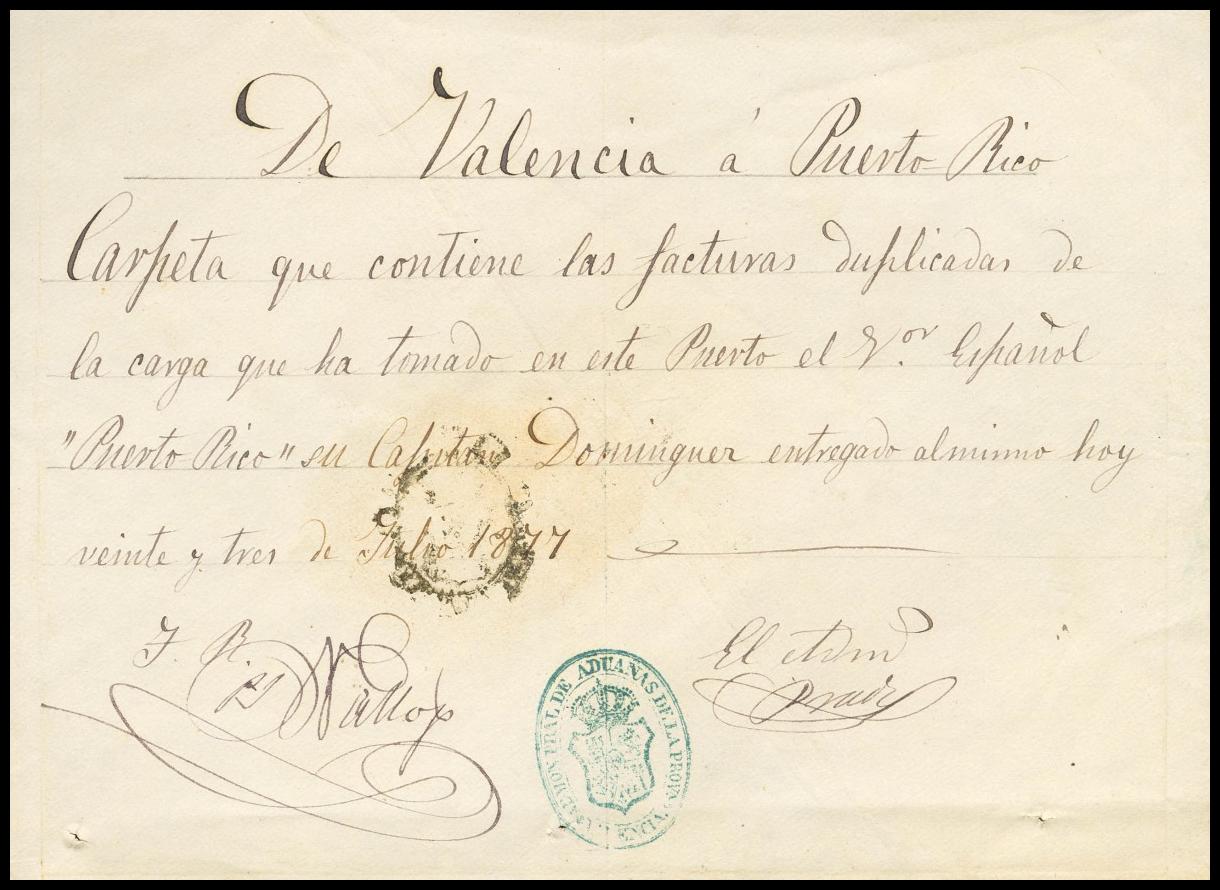 De Valencia á Puerto-Rico
Carpeta que contiene las facturas duplicadas de
la carga que ha tomado en este Puerto el Vor. Español
"Puerto Rico" su Capitan Dominguez entregado al mismo hoy
veinte y tres de Julio 1877
El Adm
DE ADUANAS DE LA PROVA